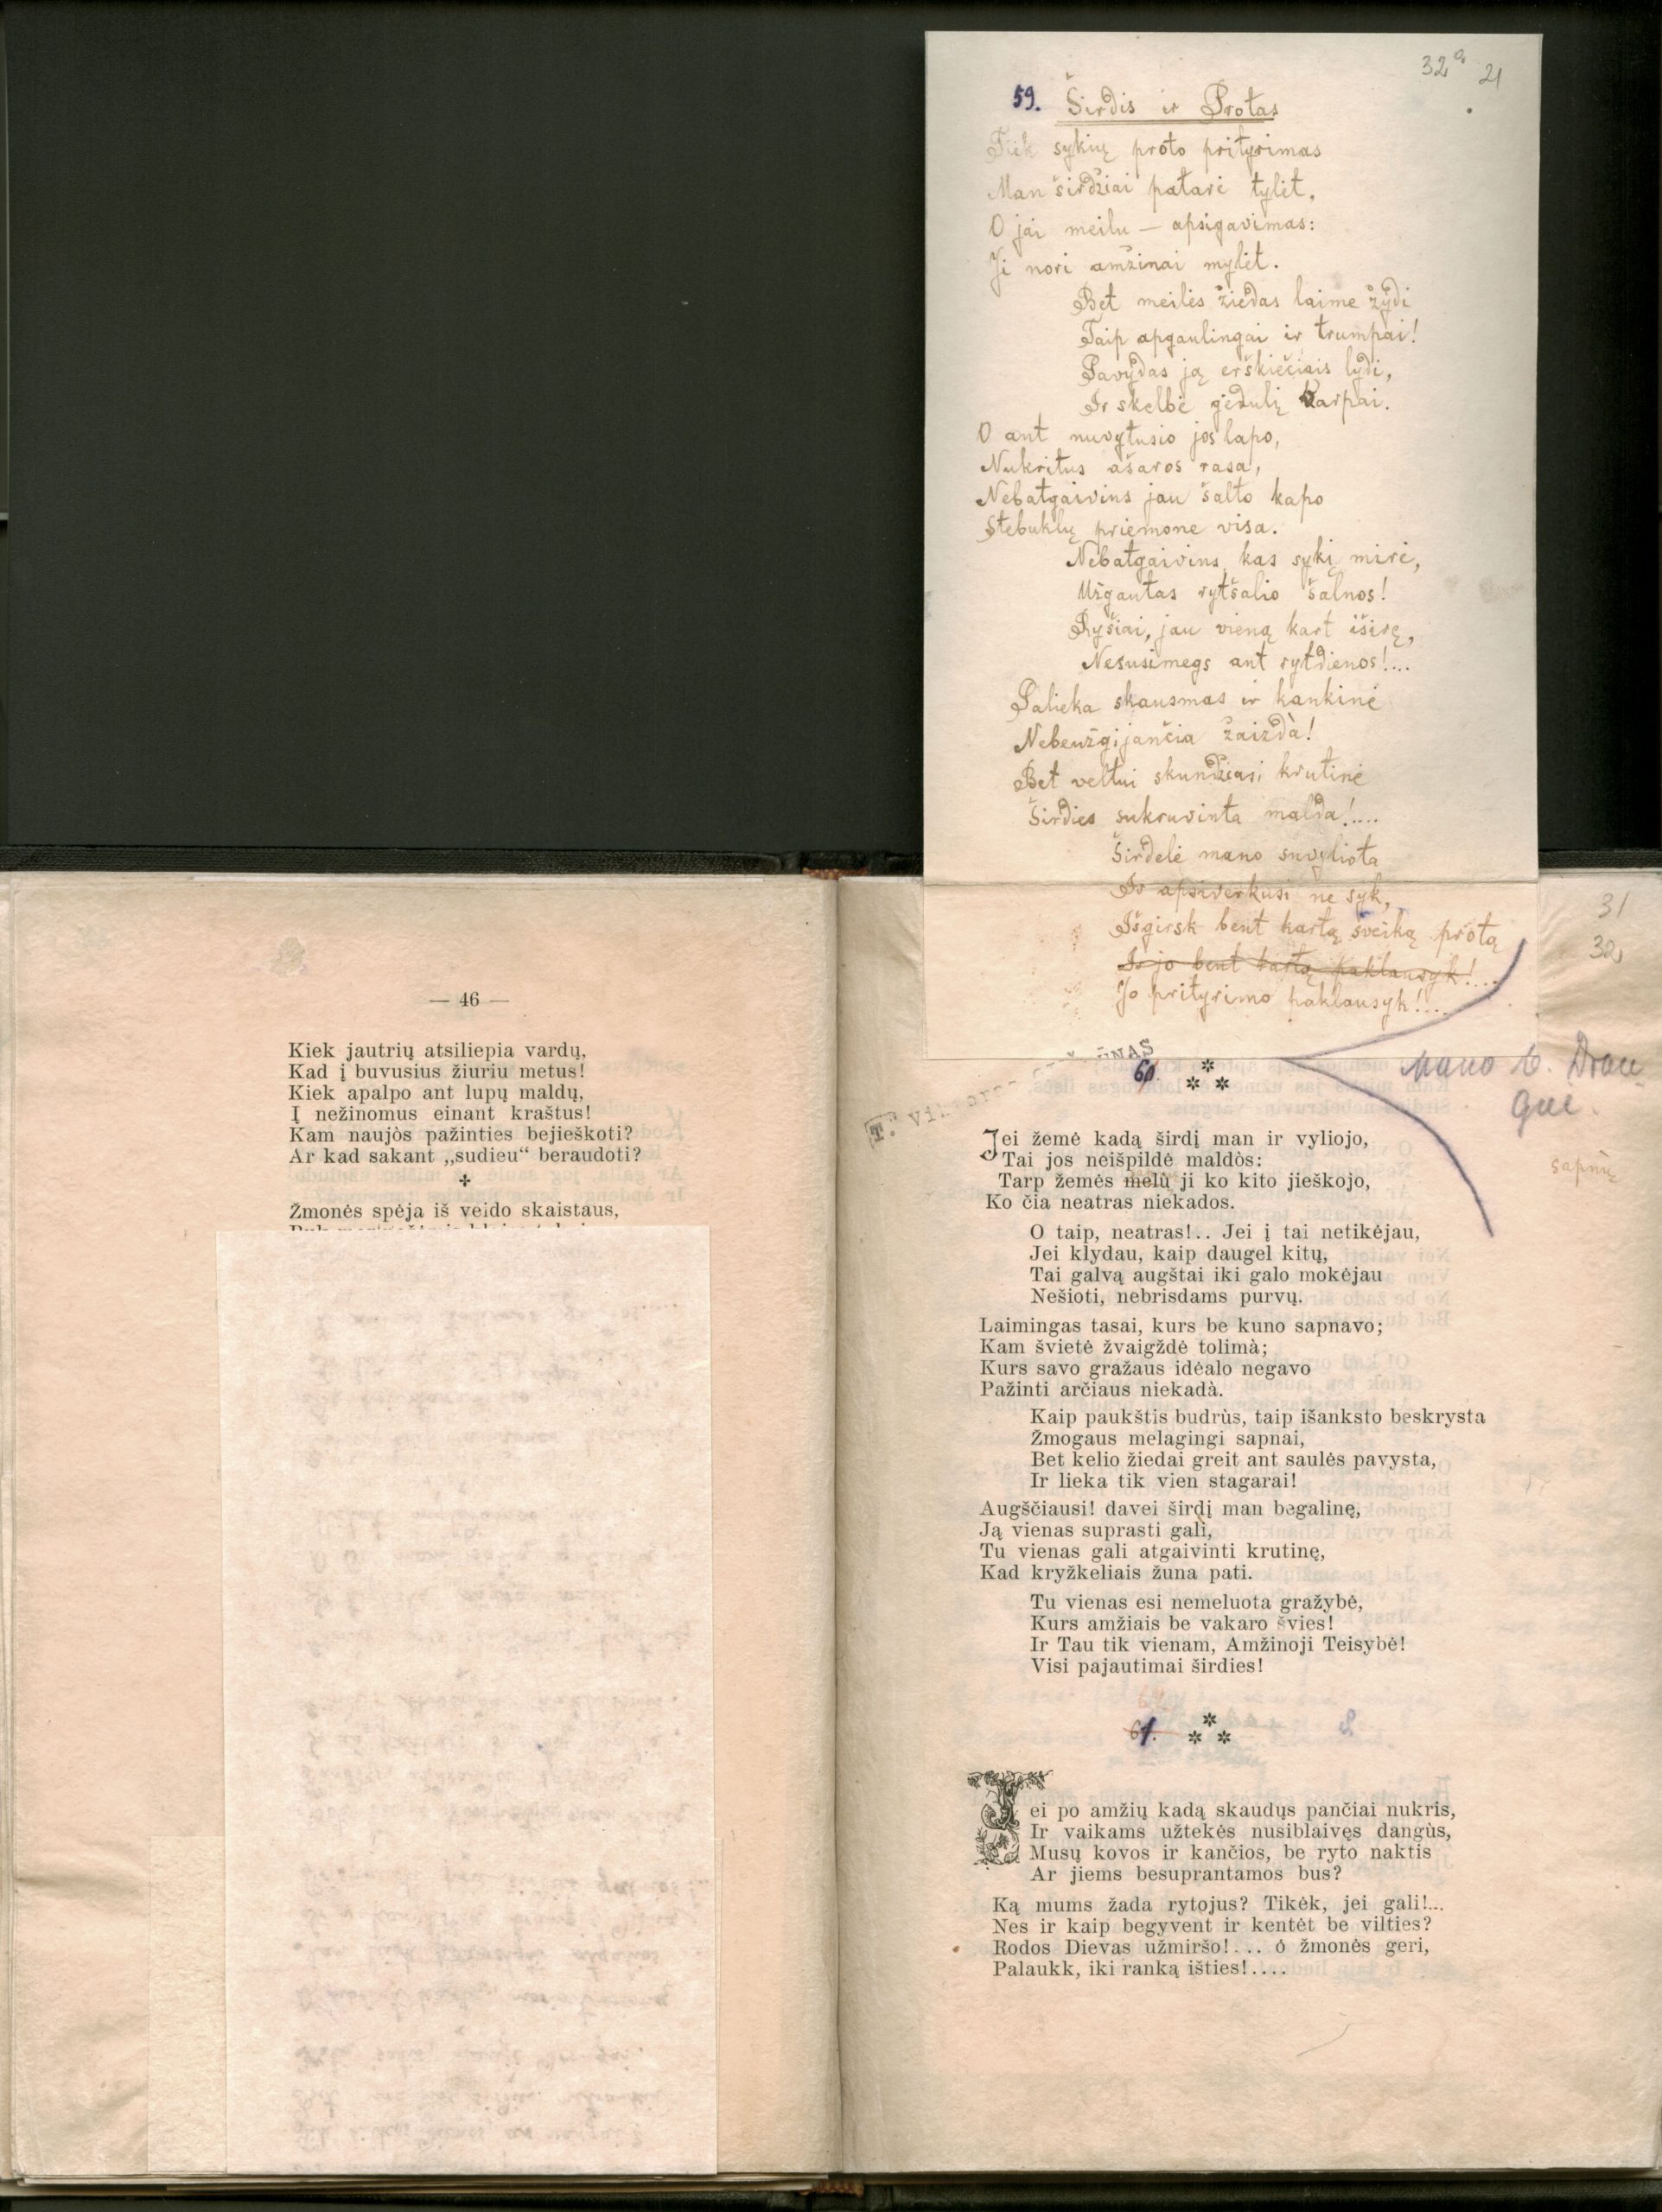 — 46 —
Kiek jautrių atsiliepia vardų,
Kad į buvusius žiuriu metus!
Kiek apalpo ant lupų maldų,
Į nežinomus einant kraštus!
Kam naujòs pažinties bejieškoti?
Ar kad sakant „sudieu“ beraudoti?
Žmonės spėja iš veido skaistaus,
32a 21
59. Širdis ir Protas
Tiek sykių proto prityrimas
Man širdžiai patarė tylėt,
O jai meilu — apsigavimas:
Ji nori amžinai mylėt.
Bet meilės žiedas laime žydi
Taip apgaulingai ir trumpai!
Pavydas ją erškiečiais lydi,
Ir skelbė gedulį varpai.
O ant nuvytusio jos lapo,
Nukritus ašaros rasa,
Nebatgaivins jau šalto kapo
Stebuklų priemone visa.
Nebatgaivins, kas sykį mirė,
Užgautas rytšalio šalnos!
Ryšiai, jau vieną kart iširę,
Nesusimegs ant rytdienos!...
Palieka skausmas ir kankinė
Nebeužgijančia žaizdà!
Bet veltui skundžiasi krutinė
Širdies sukruvinta malda!....
Širdelė mano suvyliota
Ir apsiverkusi ne syk,
Išgirsk bent kartą sveiką protą
Ir jo bent kartą paklausyk!...
Jo prityrimo paklausyk!...
31
32
60. ***
Mano D. Drau
gui.
Jei žemė kadą širdį man ir vyliojo,
Tai jos neišpildė maldòs:
Tarp žemės melų ji ko kito jieškojo,
sapnų
Ko čia neatras niekados.
O taip, neatras!.. Jei į tai netikėjau,
Jei klydau, kaip daugel kitų,
Tai galvą augštai iki galo mokėjau
Nešioti, nebrisdams purvų.
Laimingas tasai, kurs be kuno sapnavo;
Kam švietė žvaigždė tolimà;
Kurs savo gražaus idėalo negavo
Pažinti arčiaus niekadà.
Kaip paukštis budrùs, taip išanksto beskrysta
Žmogaus melagingi sapnai,
Bet kelio žiedai greit ant saulės pavysta,
Ir lieka tik vien stagarai!
Augščiausi! davei širdį man begalinę,
Ją vienas suprasti gali,
Tu vienas gali atgaivinti krutinę,
Kad kryžkeliais žuna pati.
Tu vienas esi nemeluota gražybė,
Kurs amžiais be vakaro švies!
Ir Tau tik vienam, Amžinoji Teisybė!
Visi pajautimai širdies!
61. ***
Jei po amžių kadą skaudųs pančiai nukris,
Ir vaikams užtekės nusiblaivęs dangùs,
Musų kovos ir kančios, be ryto naktis
Ar jiems besuprantamos bus?
Ką mums žada rytojus? Tikėk, jei gali!...
Nes ir kaip begyvent ir kentėt be vilties?
Rodos Dievas užmiršo!... ó žmonės geri,
Palaukk, iki ranką išties!....